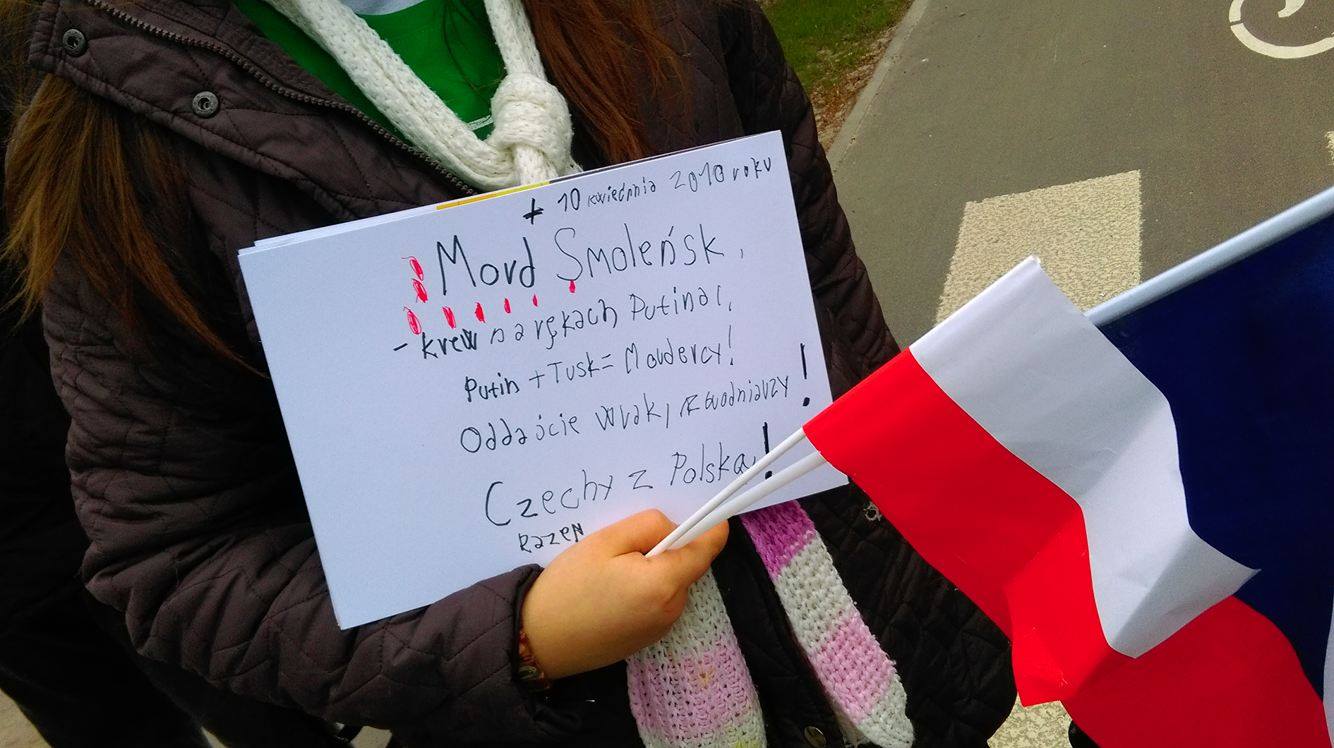 + 10 kwiednia 2010 roku
Mord Smoleńsk,
- krew na rękach Putina!,
Putin + Tusk = Mordercy!
Oddajcie wrak, zbrodniarzy!
Czechy z Polską!
Razem